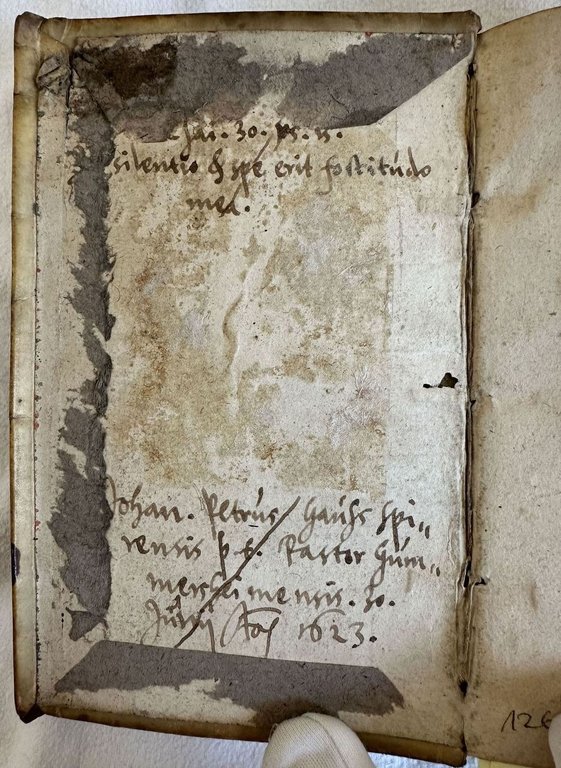 Esai. 30. ps. 15.
silentio & spe erit fortitudo
mea.
Johan. Petrus Hauss Spi„
rensis p.t. Pastor Gum„
mersheimensis. 30.
Junij Ao 1623.
126